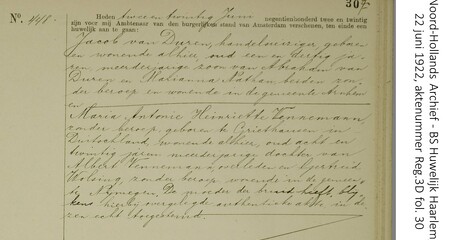 307
Nº. 448.
Heden tweeentwintig Juni negentienhonderd twee en twintig
zijn voor mij Ambtenaar van den burgerlijken stand van Amsterdam verschenen, ten einde een
huwelijk aan te gaan:
Jacob van Duren, handelsreiziger geboren
en wonende alhier, oud een en dertig ja-
ren meerderjarige zoon van Abraham van
Duren en Marianna Nathan beiden zon-
der beroep en wonende in de gemeente Arnhem
en
Maria Antonie Heinriette Tennemann
zonder beroep, geboren te Griethausen in
Duitschland, wonende alhier, oud acht en
twintig jaren meerderjarige dochter van
Albert Tennemann, overleden en
Wolsing, zonder beroep, wonende in de gemeen-
te Nijmegen. De moeder der bruid heeft blij-
kens hierbij overgelegde authentieke akte, in de-
zen echt toegestemd.
Noord-Hollands Archief - BS Huwelijk Haarlem
22 juni 1922, aktenummer Reg.3D fol. 30